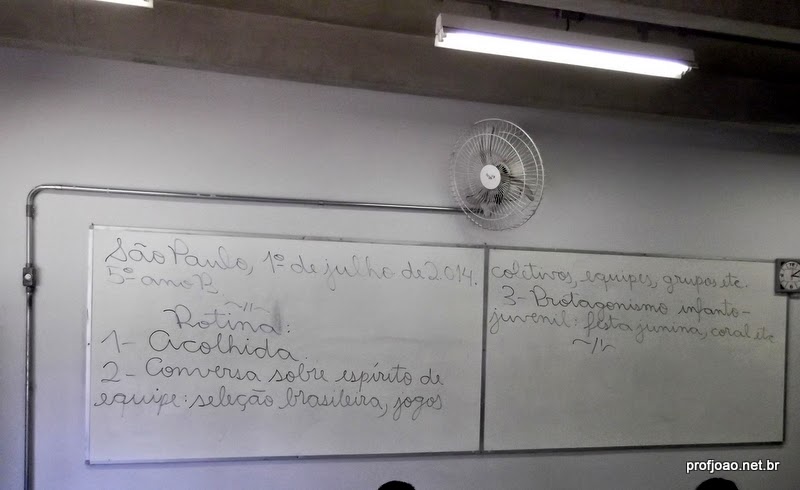 São Paulo, 1º de julho de 2014.
5º ano B
~//~
Rotina:
1- Acolhida.
2- Conversa sobre espírito de
equipe: seleção brasileira, jogos
coletivos, equipes, grupos etc.
3- Protagonismo infanto-
juvenil: festa junina, coral etc
~//~
profjoao.net.br